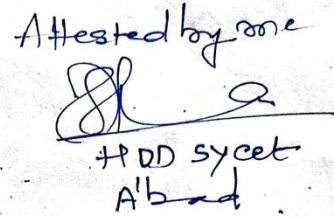 Attested by me
HOD sycet
A'bad